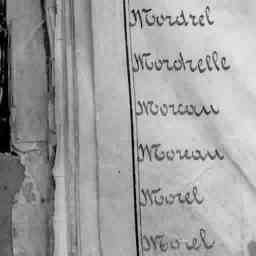 Mordrel
Mordrelle
Moreau
Moreau
Morel
Morel